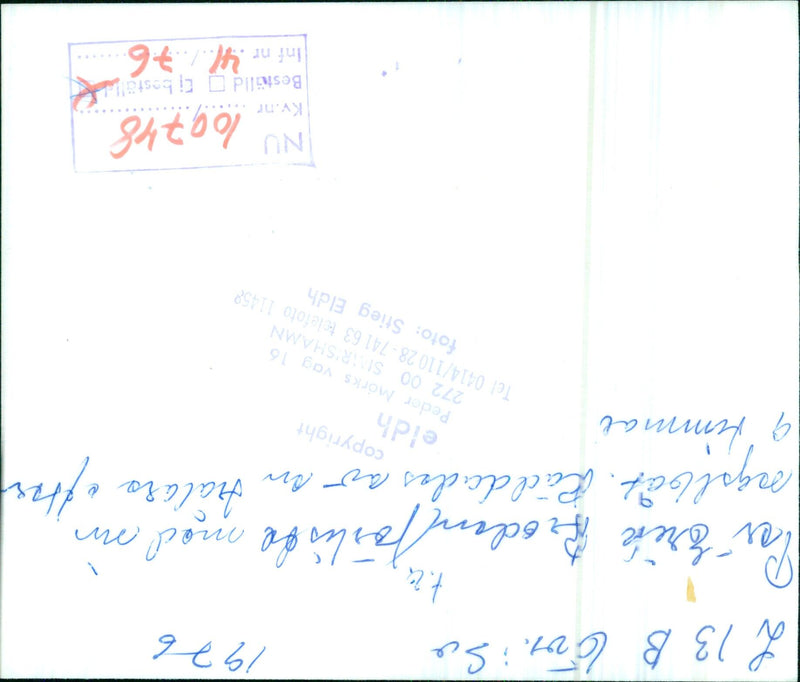 L 13 B Övr: Sv 1976
Per Erik
t.v. förliste med sin
segelbåt. Räddades av en trålare efter
9 timmar
copyright
eldh
Peder Mörks väg 16
272 00 SIMRISHAMN
Tel 0414/110 28 - 741 63 telefoto 11458
foto: Stieg Eldh
NU
Kv.nr 100748
Beställd Ej beställd X
Inf nr 41/76